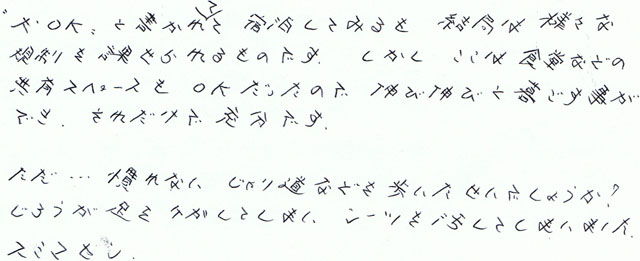 "犬・OK"と書かれていて宿泊してみると 結局は様々な
規制を課せられるものです。しかし ここは食堂などの
共有スペースも OKだったので 伸び伸びと過ごす事が
でき、それだけで充分です。
ただ…慣れない じゃり道などを歩いたせいでしょうか?
じょうが足をケガしてしまい シーツを汚してしまいました。
スミマセン。